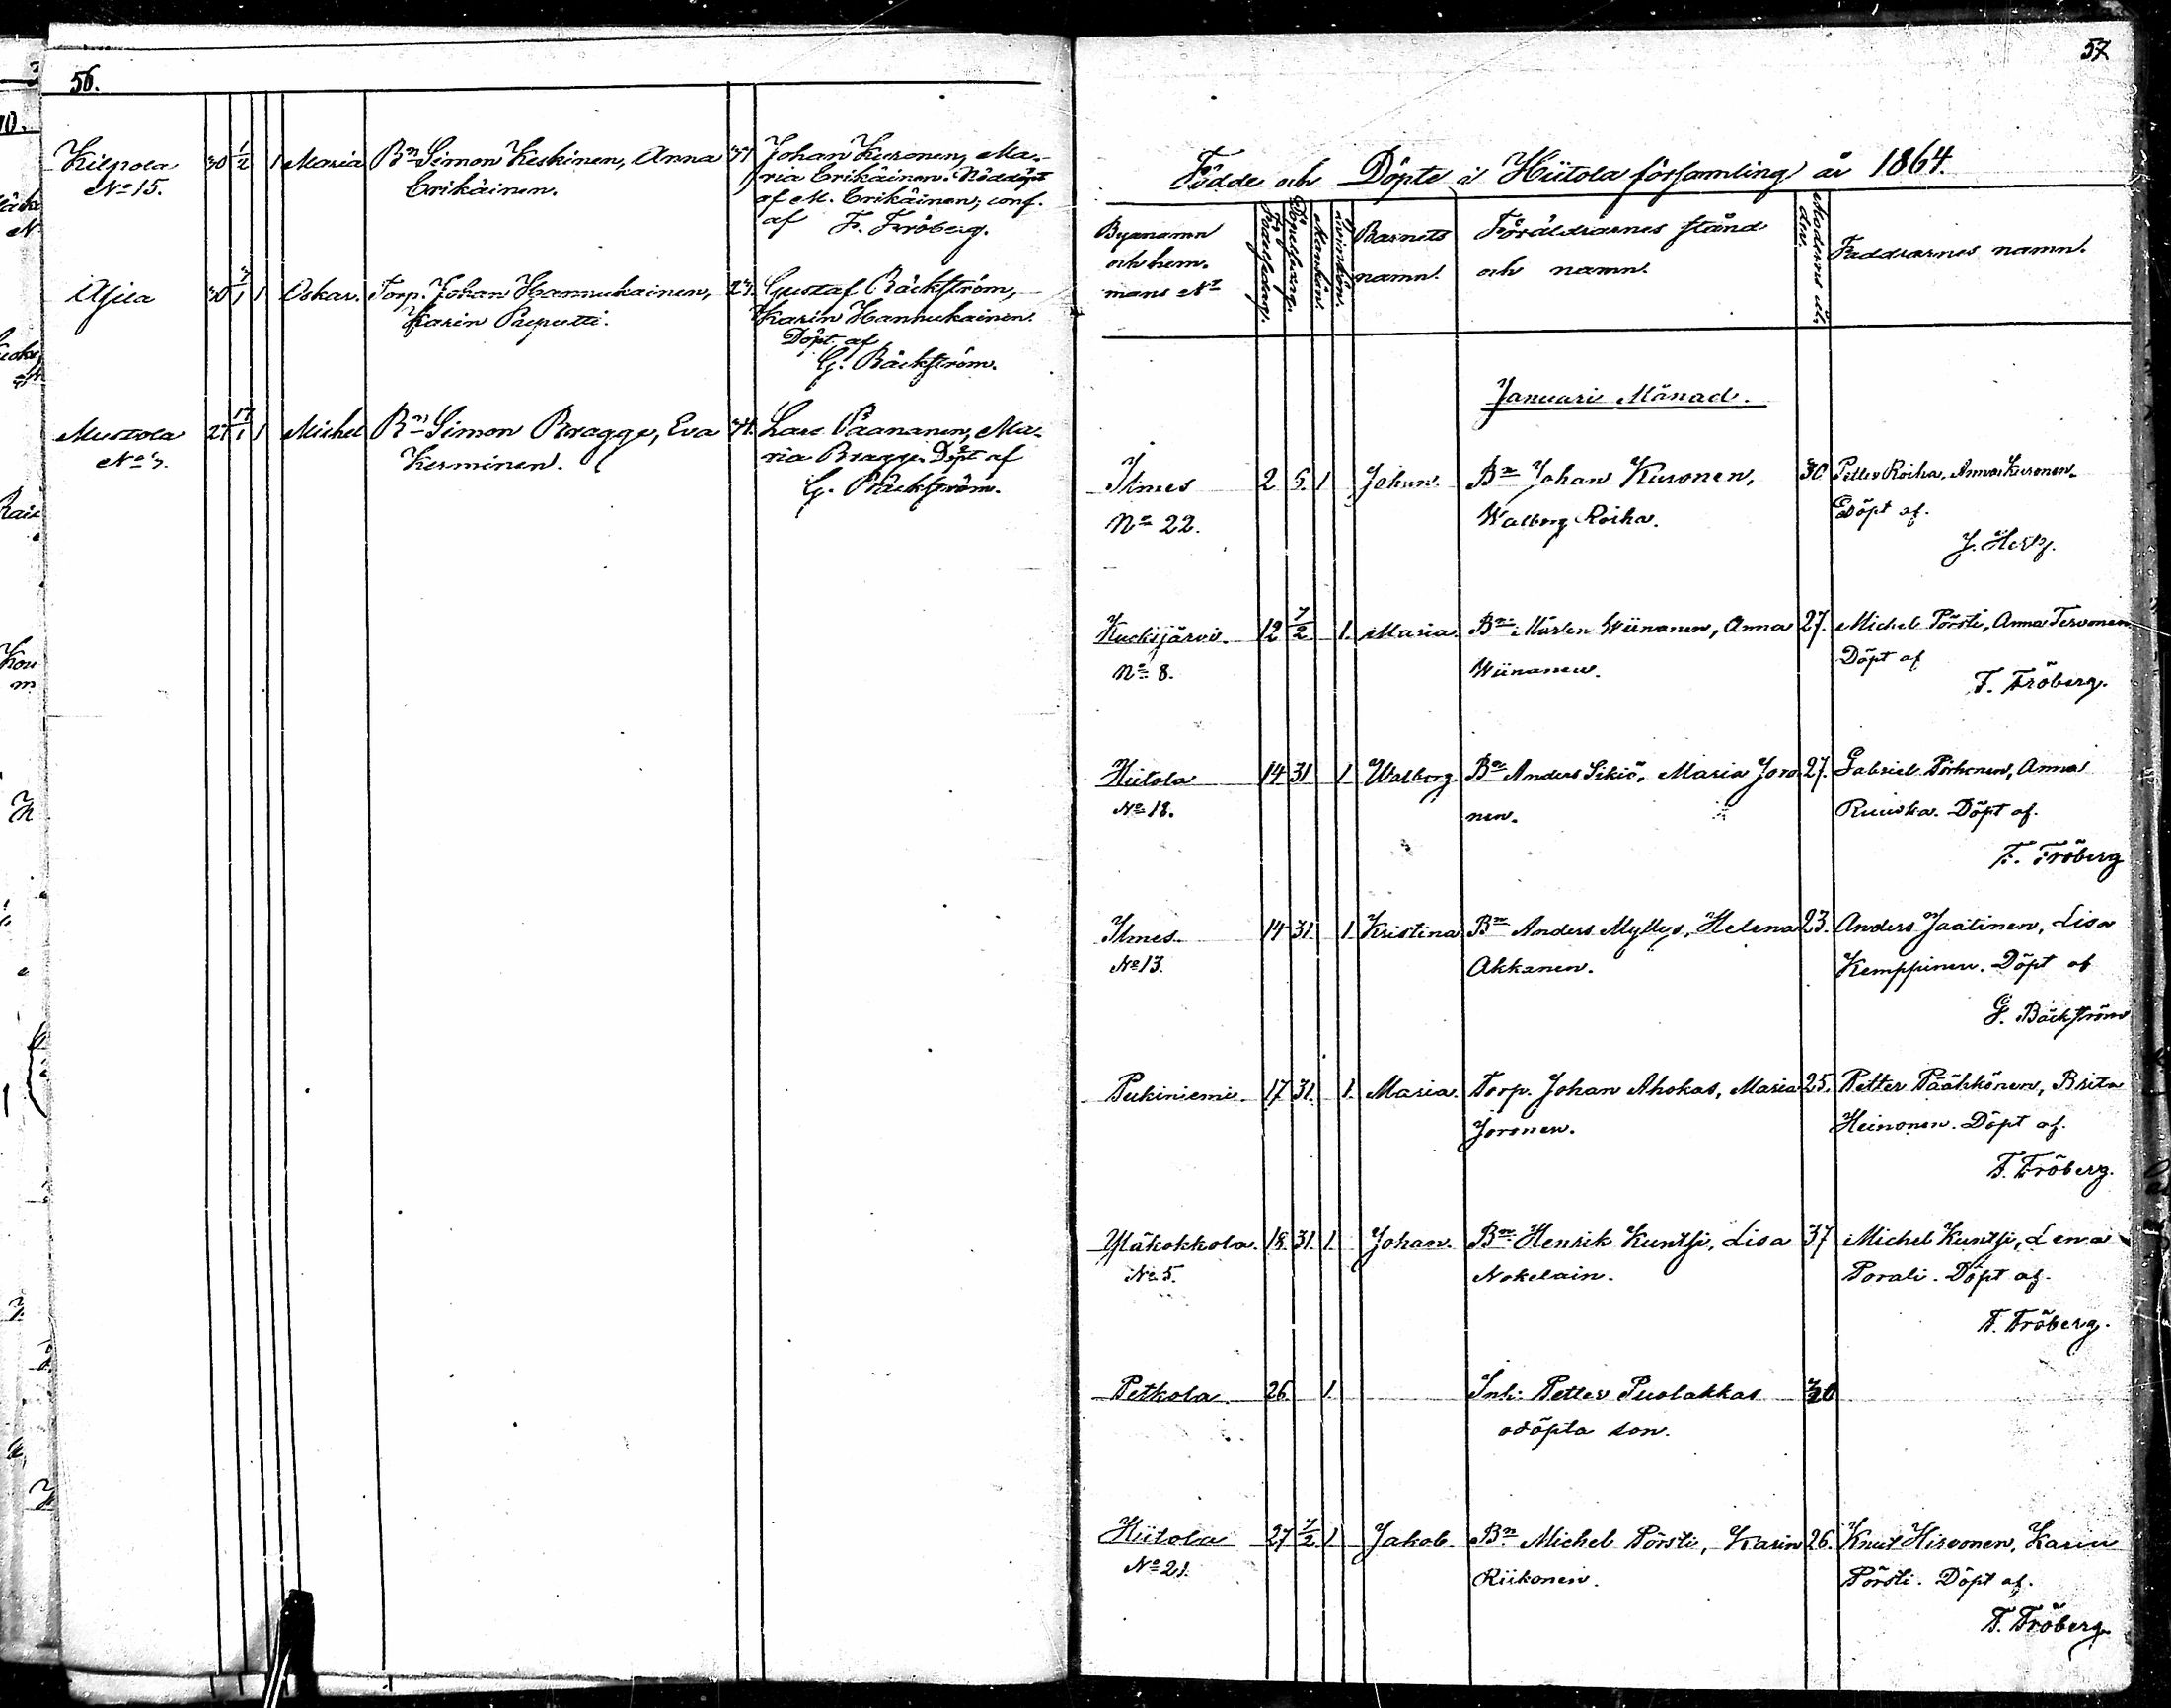 56.
Kilpola 30 1/2 1 Maria Bn Simon Keskinen, Anna 31 Johan Kuronen, Ma-
No 15. Erikäinen. ria Erikäinen. Nöddöpt
af M. Erikäinen, conf.
af F. Fröberg.
Asila 30 7/1 1 Oskar. Torp. Johan Hannukainen, 23. Gustaf Bäckström,
Karin Preputti. Karin Hannukainen.
Döpt af
G. Bäckström.
Mustola 27 17/1 1 Michel Bn Simon Bragge, Eva 34. Lars Paananen, Ma-
No 3. Kerminen. ria Bragge. Döpt af
G. Bäckström.
57
Födde och Döpte i Hiitola församling år 1864.
Byanamn och hem-mans No Födelsedag. Döpelsedag. Mankön. Qvinkön. Barnets namn. Föräldrarnes stånd och namn. Modrens ål-der. Faddrarnes namn.
Januari Månad.
Ilmes 2 6. 1 Johan. Bn Johan Kuronen, 30 Petter Roiha, Anna Kuronen.
No 22. Walborg Roiha. Döpt af.
J. Hertz.
Kuoksjärvi. 12 7/2 1. Maria. Bn Mårten Wiinanen, Anna 27. Michel Pörsti, Anna Tervonen
No 8. Wiinanen. Döpt af
F. Fröberg.
Hiitola 14 31 1 Walborg. Bn Anders Sikiö, Maria Joro 27. Gabriel Pörhönen, Anna
No 18. nen. Ruuska. Döpt af.
F. Fröberg
Ilmes 14 31. 1. Kristina Bn Anders Myllys, Helena 23. Anders Jaatinen, Lisa
No 13. Akkanen. Kemppinen. Döpt af
G. Bäckström
Pukiniemi. 17 31. 1. Maria. Torp. Johan Ahokas, Maria 25. Petter Pääkkönen, Brita
Joronen. Heinonen. Döpt af.
F. Fröberg.
Yläkokkola. 18. 31. 1. Johan. Bn Henrik Kuntsi, Lisa 37 Michel Kuntsi, Lena
No 5. Nokelain. Porali. Döpt af.
F. Fröberg.
Petkola 26. 1. Inh. Petter Puolakkas
odöpta son.
Hiitola 27 7/2 1 Jakob Bn Michel Pörsti, Karin 26. Knut Hirvonen, Karin
No 21. Riikonen. Pörsti. Döpt af.
F. Fröberg.